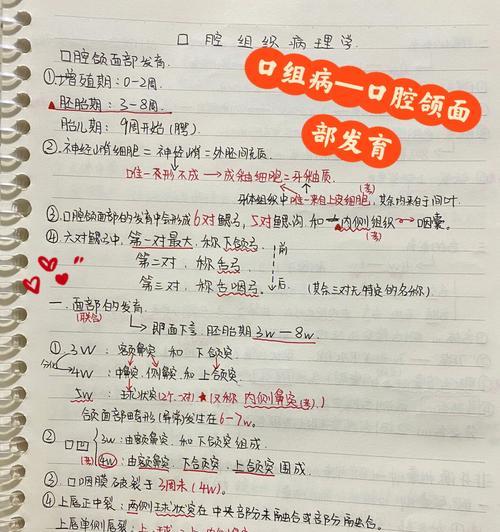 口腔组织病理学
口组病—口腔颌面
部发育
口腔颌面部发育
①增殖期:0-2周
胚胎期:3-8周
胎儿期:9周开始(腭)
②.神经嵴细胞=神经嵴=外胚间充质
唯一来形不成→成釉细胞=牙釉质
(考)
牙体组织中唯一来自上皮细胞,其余均来自于间叶.
③.口腔颌面部的发育中会形成6对鳃弓,5对鳃沟.和内侧组织→咽囊.
(考)
④.六对鳃弓中,第一对最大,称下颌弓 前
第二对,称舌弓
第三对,称舌咽弓 后. (其余三对无特定的名称)
一.面部的发育.
(联合) 即面下言.胚胎期3w—8w
①3w:额鼻突和下颌突.
分化
4w:中鼻突.侧鼻突.和上颌突
5w:球状突(2个.一对)★(又称内侧鼻突(考).)
颌面部畸形(异常)发生在6-7w.
②口凹 3w:由额鼻突.和下颌突组成.
(4w):由额鼻突.下颌突.上颌突围成.
③.口咽膜破裂于3周末(4w).
④上唇正中裂:两侧球状突在中央部分未融合或部分融合.
上唇单侧唇裂: